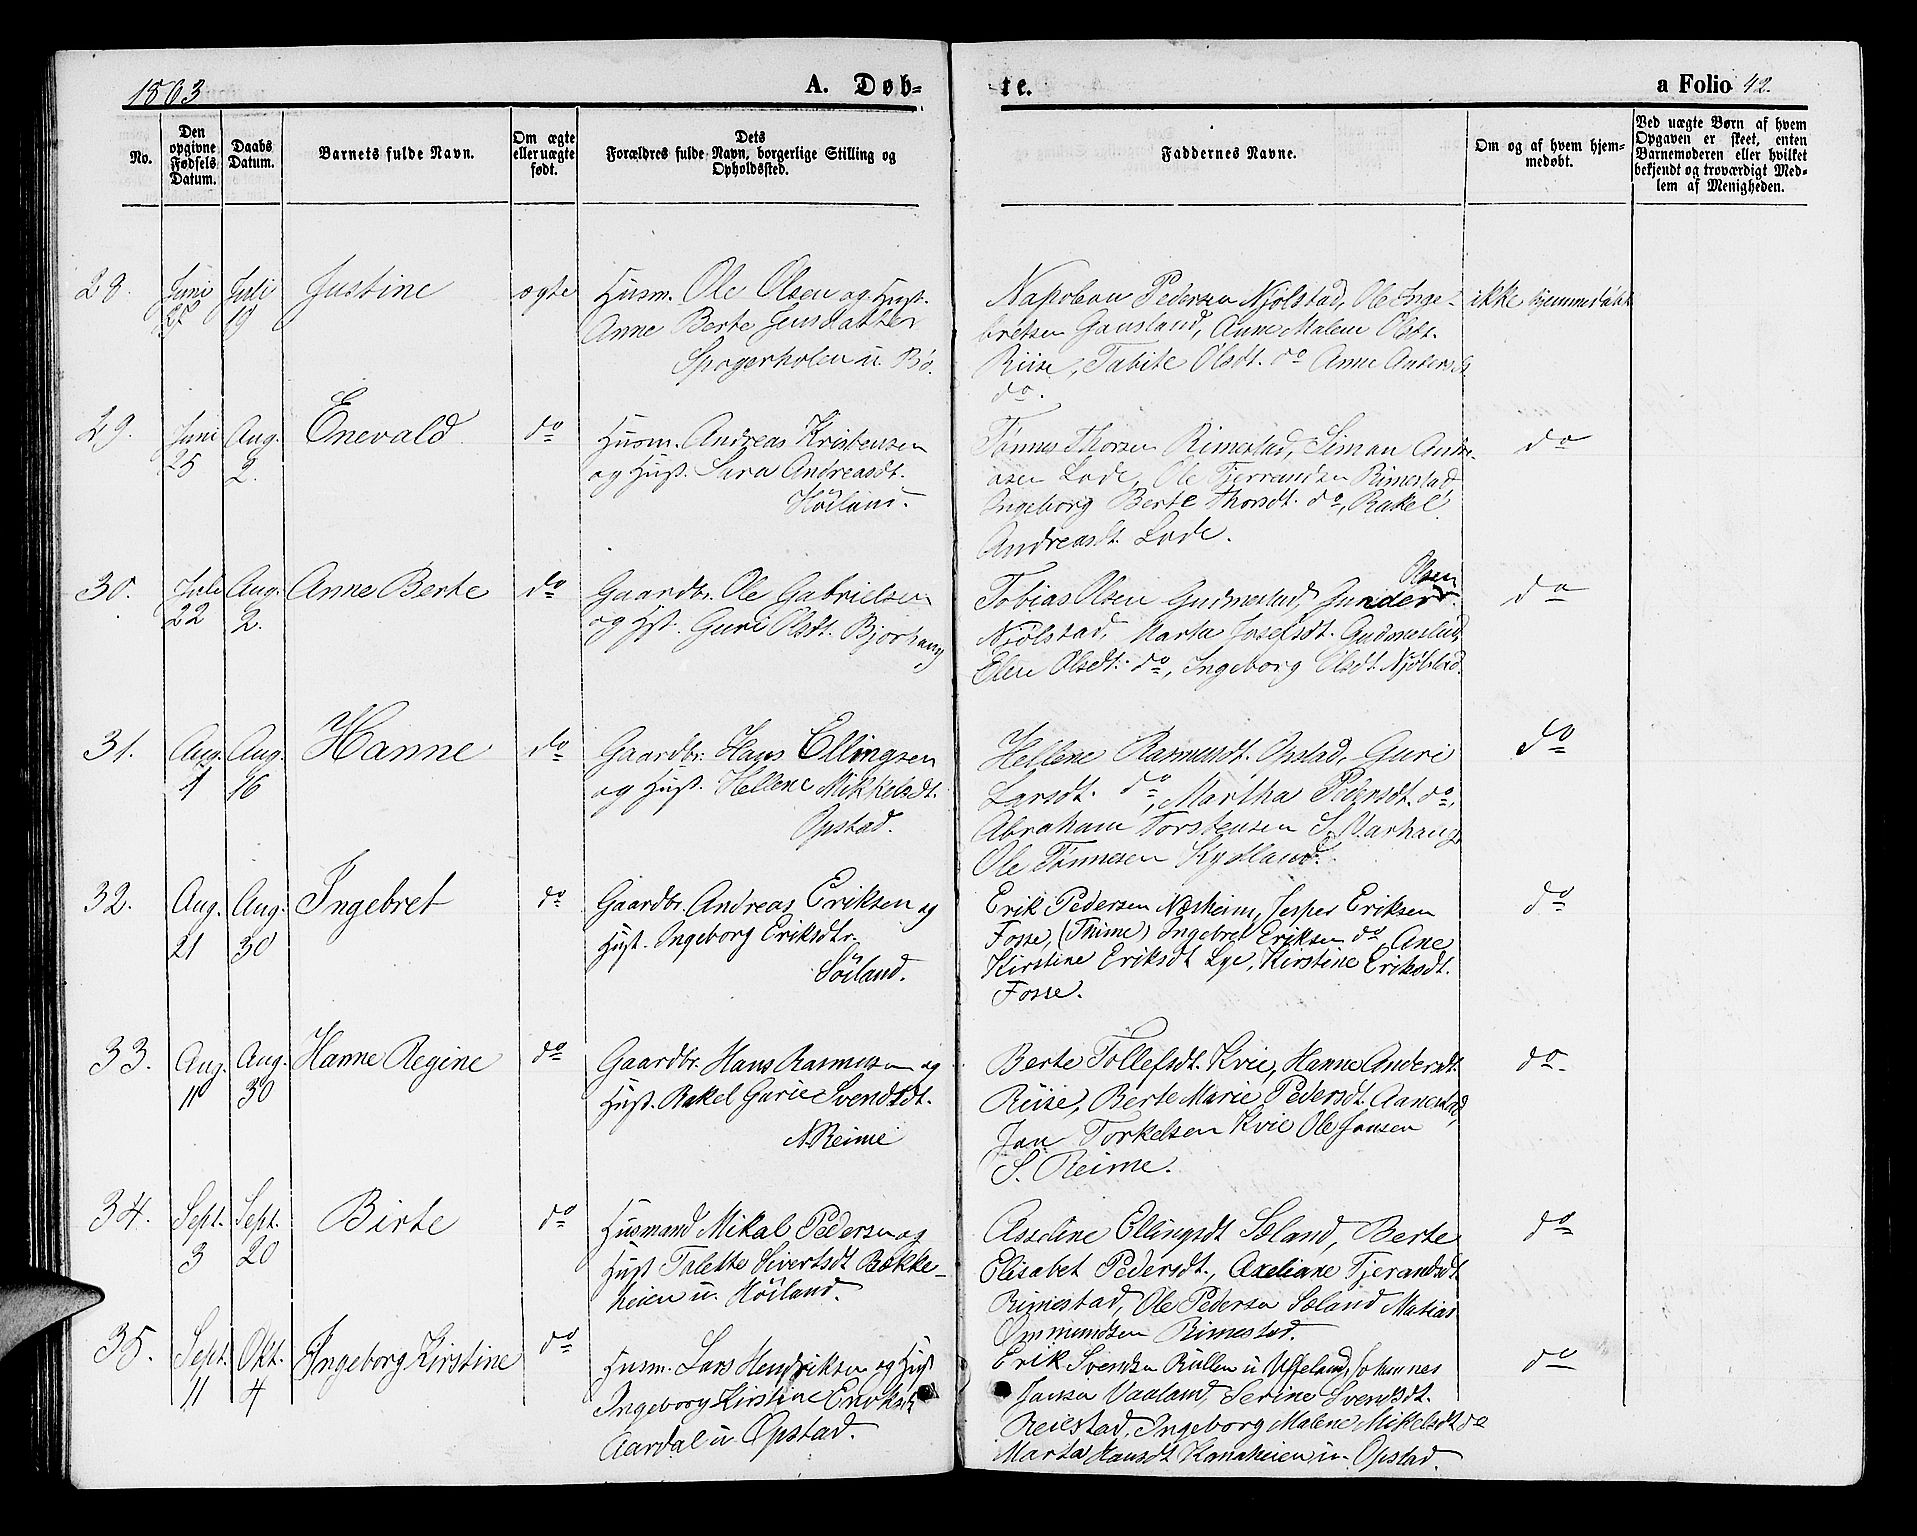 1863
A. Døb-
No.
Den opgivne Fødsels Datum.
Daabs Datum.
Barnets fulde Navn.
Om ægte eller uægte født.
Dets Forældres fulde Navn, borgerlige Stilling og Opholdssted.
te.
a Folio 42.
Faddernes Navne.
Om og af hvem hjem-
medøbt.
Ved uægte Børn af hvem
Opgaven er skeet, enten
Barnemoderen eller hvilket
bekjendt og troværdigt Med-
lem af Menigheden.
28. Juni Juli 19 Justine ægte
Husm. Ole Olsen og Hust.
Anne Berte Jensdatter
u. Bø.
Napoleon Pedersen Njølstad, Ole Inge-
bretsen Gausland, Anne Malene Olsdt.
Riise, Tabite Olsdt. do Anne Anders
do.
ikke hjemmedøbt
29. Juni 25 Aug. 2. Enevald do
Husm. Andreas Kristensen
og Hust. Sara Andreasdt.
Höiland.
Tönnes Thorsen Rimestad, Simon Andre-
asen Lode, Ole Fjerrandsen Rimestad
Ingeborg Berte Thorsdt. do, Rakel
Andreasdt. Lode.
do
30. Juli 22 Aug. 2. Anne Berte do
Gaardbr. Ole Gabrielsen
og Hst. Guri Olsdt. Bjorhaug
Tobias Olsen Gudmestad, Gunder Olsen
Njölstad, Marta Josefsdt. Gudmestad,
Elen Olsdt. do, Ingeborg Olsdt. Njølstad.
do
31. Aug. 1 Aug. 16 Hanne do
Gaardbr. Hans Ellingsen
og Hust. Hellene Mikkelsdt.
Opstad.
Hellene Rasmusdt. Opstad, Guri
Larsdt. do, Martha Pedersdt. do,
Abraham Torstensen S. Varhaug,
Ole Tönnesen Kydland.
do
32. Aug. 21 Aug. 30 Ingebret do
Gaardbr. Andreas Eriksen og
Hust. Ingeborg Eriksdtr.
Söiland.
Erik Pedersen Næsheim, Jesper Eriksen
Fosse, (Thime) Ingebret Eriksen do, Ane
Kirstine Eriksdt. Lye, Kirstine Eriksdt.
Fosse.
do
33. Aug. 11 Aug. 30 Hanne Regine do
Gaardbr. Hans Rasmusen og
Hust. Rakel Gurie Svendsdt.
N. Reime
Berte Tollefsdt. Kvie, Hanne Andersdt.
Riise, Berte Marie Pedersdt. Aanestad,
Jan Torkelsen Kvie Ole Jansen
S. Reime.
do.
34. Sept. 3 Sept. 20 Birte do
Husmand Mikal Pedersen og
Hust Talette Sivertsdt Bække-
heien u. Höiland.
Asseline Ellingsdt Sæland, Berte
Elisabet Pedersdt., Axeliane Fjerandsdt
Rimestad, Ole Pedersen Sæland Matias
Ommundsen Rimestad.
do
35. Sept. 11 Okt. 4 Ingeborg Kirstine do
Husm. Lars Hendriksen og Hust
Ingeborg Kirstine
Aardal u. Opstad.
Erik Svendsen Rullen u Uffeland, Johannes
Jansen Vaaland, Serine Svendsdt.
Reiestad, Ingeborg Malene Mikelsdt do
Marta Hansdt Kanaheien u. Opstad.
do